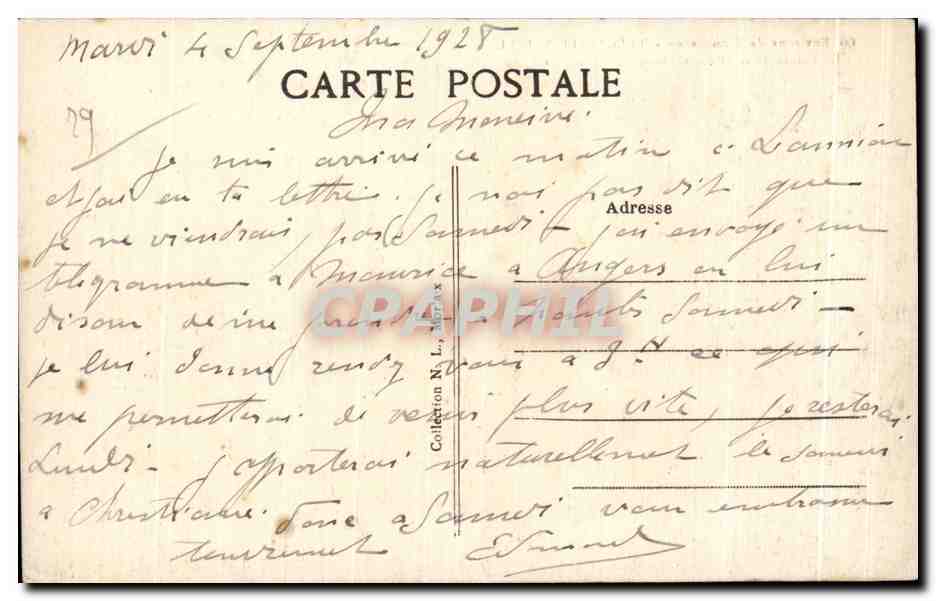 Mardi 4 Septembre 1928
CARTE POSTALE
79
Ma
Je suis arrivé ce matin à Lannion
et j'ai eu ta lettre. je pas dit que
Adresse
je ne viendrais pas Samedi - j'ai envoyé un
télégramme à Maurice à Angers en lui
disant de me prendre à Nantes Samedi -
je lui donne rendez vous à H ce qui
me permettrai de venir plus vite, je resterai
Lundi - j'apporterai naturellement le
a Christiane. Donc a Samedi vous embrasse
tendrement Edmond
Collection N. L., Morlaix
CRAPHIL